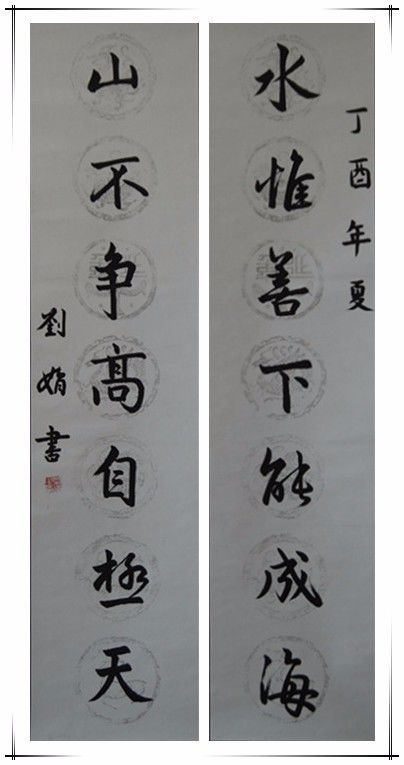 丁酉年夏
水惟善下能成海
山不争高自极天
劉娟書